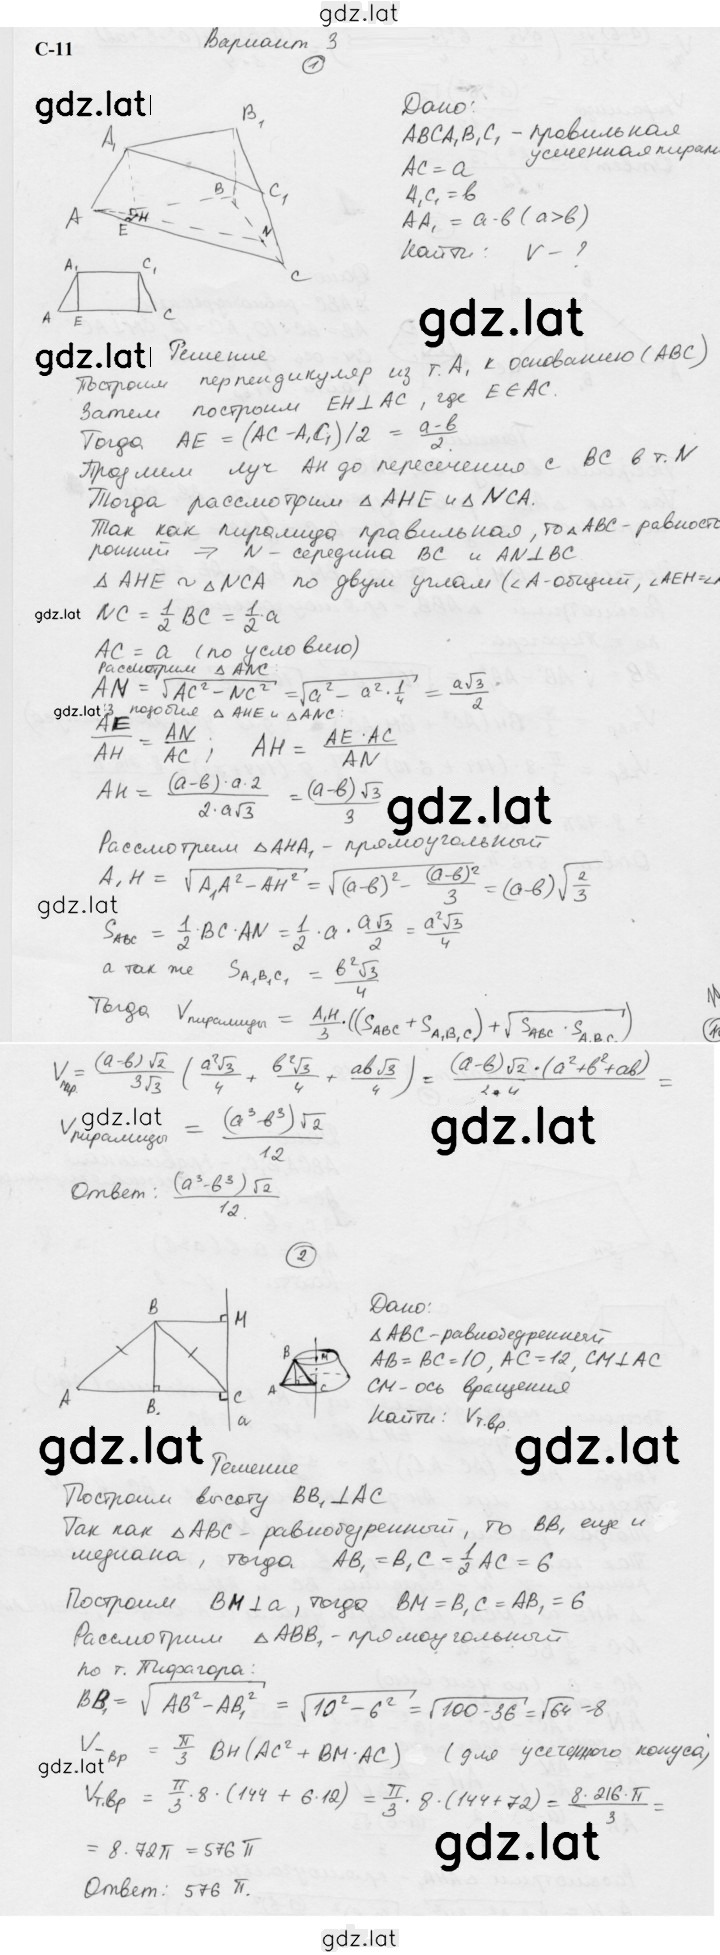 gdz.lat
С-11
Вариант 3
1
gdz.lat
Дано:
ABCA₁B₁C₁ - правильная
усеченная пирам
AC = a
A₁C₁ = b
AA₁ = a-b (a>b)
Найти: V - ?
A₁ B₁ C₁ A B C E H N
A₁ C₁ A E C
gdz.lat
gdz.lat
Решение
Построим перпендикуляр из т. A₁ к основанию (ABC)
Затем построим EH⊥AC, где E∈AC.
Тогда AE = (AC - A₁C₁)/2 = (a-b)/2.
Продлим луч AH до пересечения с BC в т. N
Тогда рассмотрим △AHE и △NCA.
Так как пирамида правильная, то △ABC - равносто
ронний → N - середина BC и AN⊥BC
△AHE ~ △NCA по двум углам (∠A-общий, ∠AEH=∠
gdz.lat
NC = 1/2 BC = 1/2·a
AC = a (по условию)
Рассмотрим △ANC:
AN = √(AC² - NC²) = √(a² - a²·1/4) = a√3/2.
gdz.lat
З подобия △AHE и △ANC:
AE/AH = AN/AC; AH = AE·AC/AN
AH = (a-b)·a·2/2·a√3 = (a-b)√3/3
gdz.lat
Рассмотрим △AHA₁ - прямоугольный
gdz.lat
A₁H = √(A₁A² - AH²) = √((a-b)² - (a-b)²/3) = (a-b)√(2/3)
S_ABC = 1/2·BC·AN = 1/2·a·a√3/2 = a²√3/4
а так же S_A₁B₁C₁ = b²√3/4
Тогда Vпирамиды = A₁H/3·((S_ABC + S_A₁B₁C₁) + √(S_ABC·S_A₁B₁C₁))
Vпир. = (a-b)√2/3√3 (a²√3/4 + b²√3/4 + ab√3/4) = (a-b)√2·(a²+b²+ab)/2·4 =
gdz.lat
gdz.lat
Vпирамиды = (a³-b³)√2/12
Ответ: (a³-b³)√2/12.
2
B M A B₁ C a
B M A C
Дано:
△ABC - равнобедренный
AB = BC = 10, AC = 12, CM⊥AC
CM - ось вращения
Найти: Vт.вр.
gdz.lat
gdz.lat
Решение
Построим высоту BB₁⊥AC
Так как △ABC - равнобедренный, то BB₁ еще и
медиана, тогда AB₁ = B₁C = 1/2 AC = 6
Построим BM⊥a, тогда BM = B₁C = AB₁ = 6
Рассмотрим △ABB₁ - прямоугольный
по т. Пифагора:
BB₁ = √(AB² - AB₁²) = √(10² - 6²) = √(100-36) = √64 = 8
V-вр = π/3 BH(AC² + BM·AC) (для усеченного конуса)
gdz.lat
Vт.вр = π/3·8·(144 + 6·12) = π/3·8·(144+72) = 8·216·π/3 =
= 8·72π = 576π
gdz.lat
Ответ: 576 π.
gdz.lat